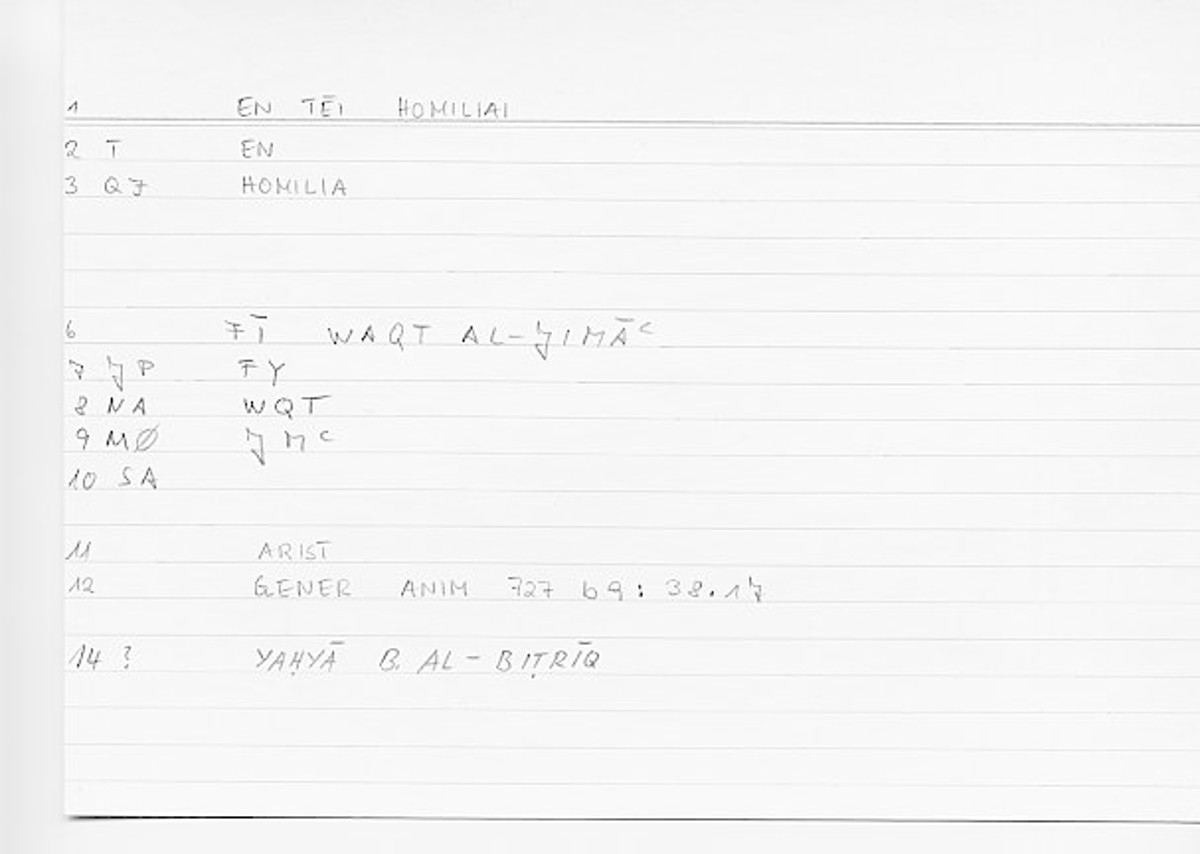 1 EN TĒI HOMILIAI
2 T EN
3 QJ HOMILIA
6 FĪ WAQT AL-JIMĀᶜ
7 JP FY
8 NA WQT
9 MØ JMᶜ
10 SA
11 ARIST
12 GENER ANIM 727 b9: 38.17
14 ? YAḤYĀ B. AL-BIṬRĪQ